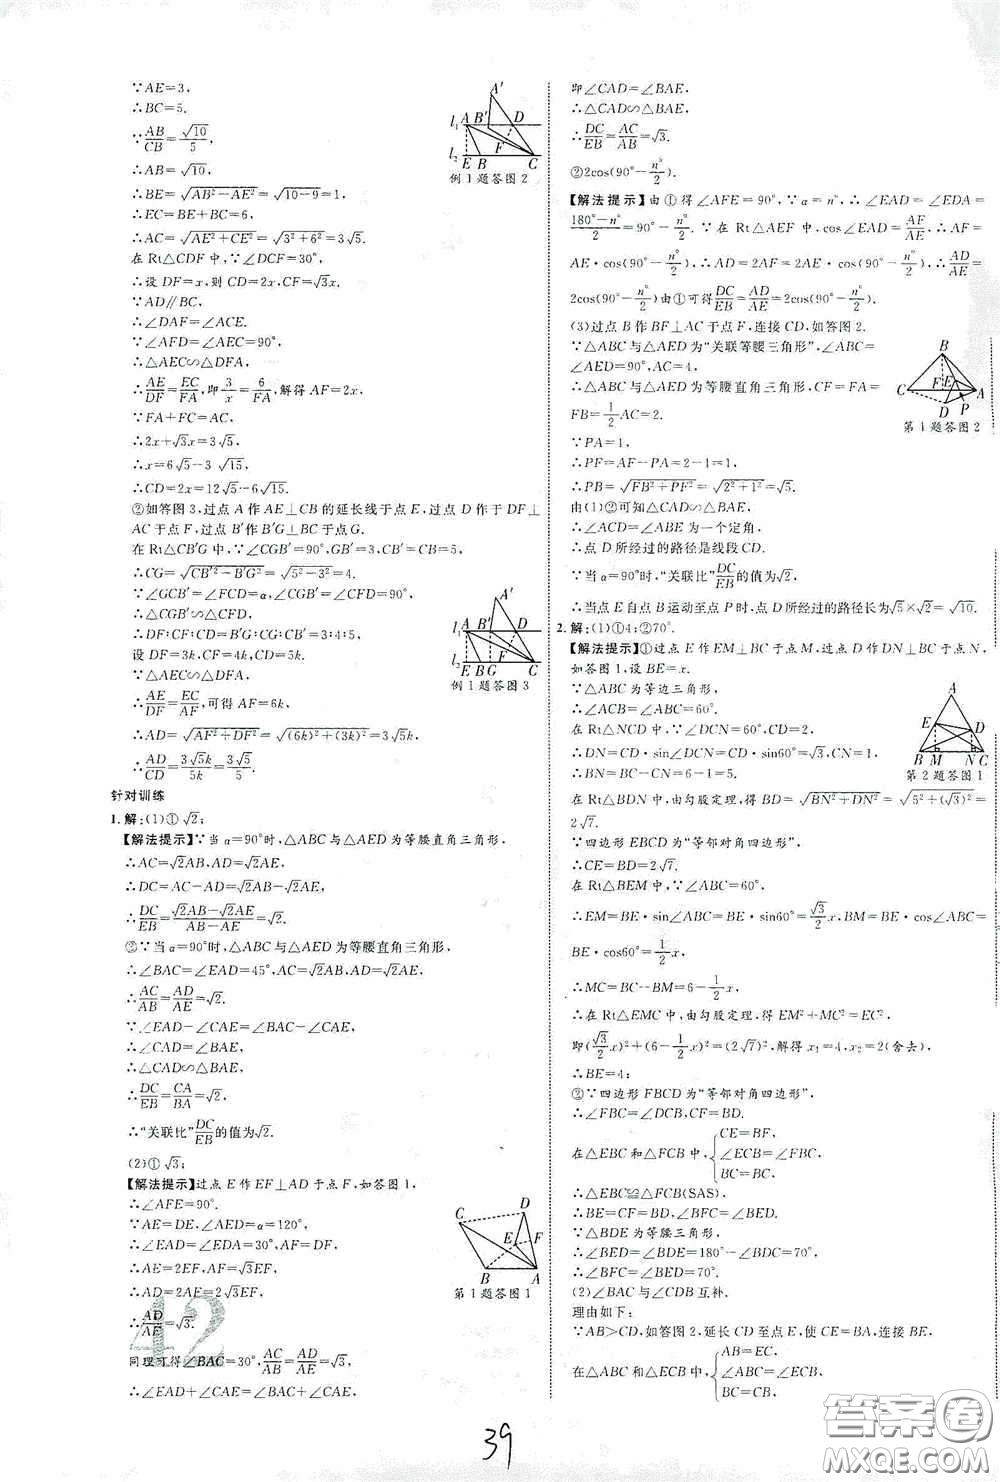 ∵AE=3,
∴BC=5.
∴AB/CB=√10/5,
∴AB=√10,
∴BE=√(AB²−AE²)=√(10−9)=1,
∴EC=BE+BC=6,
∴AC=√(AE²+CE²)=√(3²+6²)=3√5.
在 Rt△CDF 中,∵∠DCF=30°,
∴设 DF=x,则 CD=2x,CF=√3x.
∵AD∥BC,
∴∠DAF=∠ACE.
∵∠AFD=∠AEC=90°,
∴△AEC∽△DFA,
∴AE/DF=EC/FA,即3/x=6/FA,解得 AF=2x,
∵FA+FC=AC,
∴2x+√3x=3√5,
∴x=6√5−3√15,
∴CD=2x=12√5−6√15.
例1题答图2
②如答图 3,过点 A 作 AE⊥CB的延长线于点E,过点 D 作 DF⊥
AC于点F,过点 B′作 B′G⊥BC于点G.
在 Rt△CB′G 中,∵∠CGB′=90°,GB′=3,CB′=CB=5,
∴CG=√(CB′²−B′G²)=√(5²−3²)=4.
∵∠GCB′=∠FCD=α,∠CGB′=∠CFD,
∴△CGB′∽△CFD,
∴DF:CF:CD=GB′:CG:CB′=3:4:5,
设 DF=3k,CF=4k,CD=5k.
∵△AEC∽△DFA.
∴AE/DF=EC/AF,可得 AF=6k,
∴AD=√(AF²+DF²)=√((6k)²+(3k)²)=3√5k,
∴AD/CD=3√5k/5k=3√5/5.
例1题答图3
针对训练
1.解:(1)①√2;
【解法提示】∵当 α=90°时,△ABC与△AED为等腰直角三角形,
∴AC=√2AB,AD=√2AE,
∴DC=AC−AD=√2AB−√2AE,
∴DC/EB=(√2AB−√2AE)/(AB−AE)=√2.
②∵当 α=90°时,△ABC与△AED为等腰直角三角形,
∴∠BAC=∠EAD=45°,
∴AC/AB=AD/AE=√2.
∵∠EAD−∠CAE=∠BAC−∠CAE,
∴∠CAD=∠BAE,
∴△CAD∽△BAE,
∴DC/EB=CA/BA=√2,
∴“关联比”DC/EB的值为√2.
(2)①√3;
【解法提示】过点E作EF⊥AD于点F,如答图1,
∴∠AFE=90°.
∵AE=DE,∠AED=α=120°,
∴∠EAD=∠EDA=30°,AF=DF.
∴AE=2EF,AF=√3EF,
∴AD=2AF=2√3EF,
∴AD/AE=√3.
第1题答图1
同理可得∠BAC=30°,AC/AB=AD/AE=√3,
∴∠EAD+∠CAE=∠BAC+∠CAE,
即∠CAD=∠BAE,
∴△CAD∽△BAE,
∴DC/EB=AC/AB=√3.
②2cos(90°−n°/2).
【解法提示】由①得∠AFE=90°,∵α=n°,∴∠EAD=∠EDA=
(180°−n°)/2=90°−n°/2.∵在 Rt△AEF 中,cos∠EAD=AF/AE,∴AF=
AE·cos(90°−n°/2),∴AD=2AF=2AE·cos(90°−n°/2),∴AD/AE=
2cos(90°−n°/2),由①可得DC/EB=AD/AE=2cos(90°−n°/2).
(3)过点B作BF⊥AC于点F,连接CD,如答图2.
∵△ABC与△AED为“关联等腰三角形”,∠ABC=
∠AED=90°,AC=4,
∴△ABC与△AED为等腰直角三角形,CF=FA=
FB=1/2AC=2.
∵PA=1,
∴PF=AF−PA=2−1=1,
∴PB=√(FB²+PF²)=√(2²+1²)=√5.
第1题答图2
由(1)②可知△CAD∽△BAE,
∴∠ACD=∠ABE为一个定角,
∴点D所经过的路径是线段CD.
∵当α=90°时,“关联比”DC/EB的值为√2,
∴当点E自点B运动至点P时,点D所经过的路径长为√5×√2=√10.
2.解:(1)①4;②70°.
【解法提示】①过点E作EM⊥BC于点M,过点D作DN⊥BC于点N,
如答图1,设BE=x.
∵△ABC为等边三角形,
∴∠ACB=∠ABC=60°.
在 Rt△NCD 中,∵∠DCN=60°,CD=2,
∴DN=CD·sin∠DCN=CD·sin60°=√3,CN=1.
∴BN=BC−CN=6−1=5.
第2题答图1
在 Rt△BDN 中,由勾股定理,得 BD=√(BN²+DN²)=√(5²+(√3)²)=
2√7.
∵四边形EBCD为“等邻对角四边形”,
∴CE=BD=2√7.
在 Rt△BEM 中,∵∠ABC=60°,
∴EM=BE·sin∠ABC=BE·sin60°=√3/2x,BM=BE·cos∠ABC=
BE·cos60°=1/2x,
∴MC=BC−BM=6−1/2x,
∴在 Rt△EMC 中,由勾股定理,得 EM²+MC²=EC²,
即(√3/2x)²+(6−1/2x)²=(2√7)²,解得 x₁=4,x₂=2(舍去),
∴BE=4;
②∵四边形FBCD为“等邻对角四边形”,
∴∠FBC=∠DCB,CF=BD.
在△ECB和△FBC中,{CE=BF,
∠ECB=∠FBC,
BC=BC,
∴△EBC≌△FCB(SAS),
∴BE=CF=BD,
∴△BDE为等腰三角形,
∴∠BED=∠BDE=180°−∠BDC=70°,
∴∠BED=70°.
(2)∠BAC与∠CDB互补.
理由如下:
∵AB>CD,如答图2,延长CD至点E,使CE=BA,连接BE,
在△ABC和△ECB中,{AB=EC,
∠ABC=∠ECB,
BC=CB,
42
39
答案圈
MXQE.COM